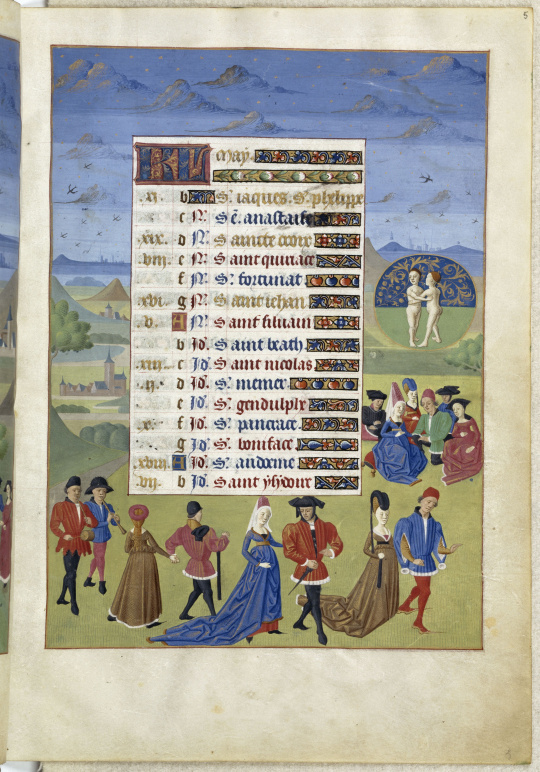 5
KL May.
.xi. b S. iaques. S. phelippe
c N. Se. anastaise
.xix. d N. Saincte croix
.viii. e N. Saint quiriace
f N. S. fortunat
.xvi. g N. Saint iehan
.v. A N. Saint
b Id. Saint beath
.xiii. c Id. Saint nicolas
.ii. d Id. S.
e Id. S. gendulphe
.x. f Id. S. pancrace
g Id. S. boniface
.xviii. A Id. S.
.vii. b Id. Saint